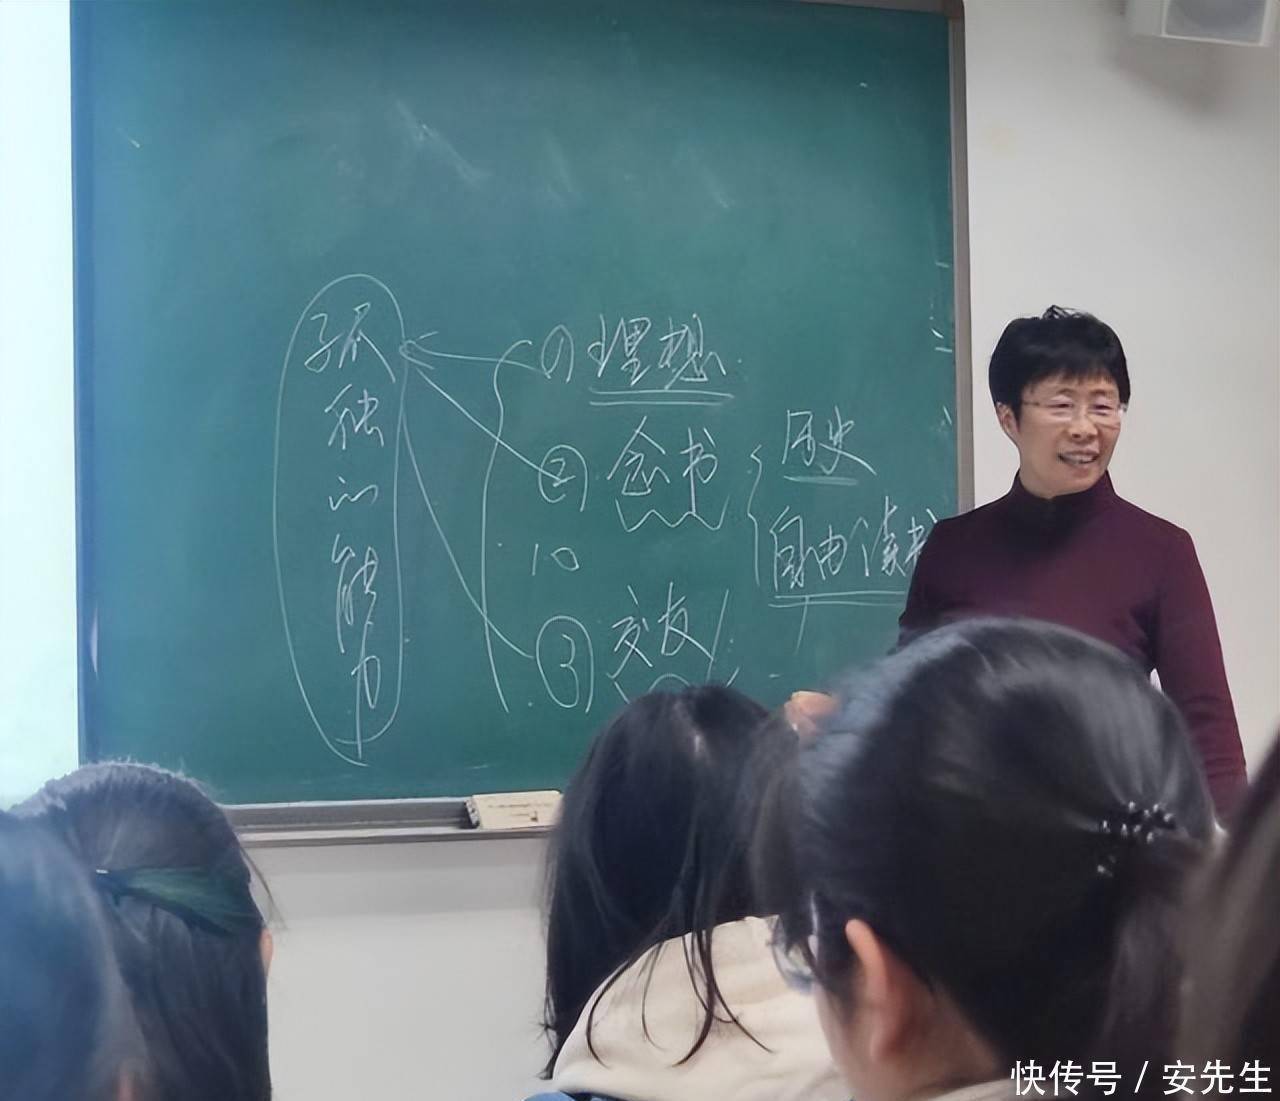 孤独的能力
① 理想
② 念书
历史
自由读书
10
③ 交友
快传号 / 安先生